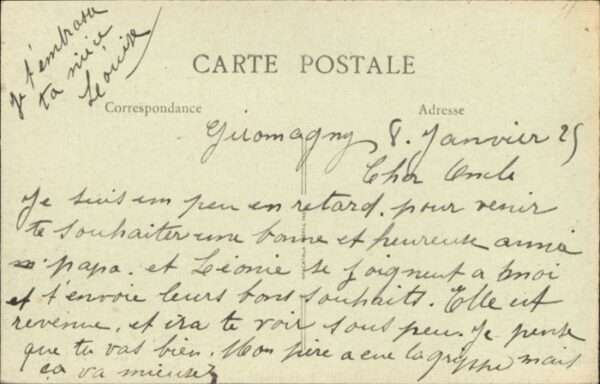 je t'embrasse
ta nièce
Léonie
CARTE POSTALE
Correspondance
Adresse
Giromagny 8. Janvier 25
Cher Oncle
Je suis un peu en retard. pour venir
te souhaiter une bonne et heureuse année
papa. et Léonie se joignent a moi
et t'envoie leurs bons souhaits. Elle est
revenue. et ira te voir sous peu. Je pense
que tu vas bien. Mon père a eue la grippe mais
ça va mieux